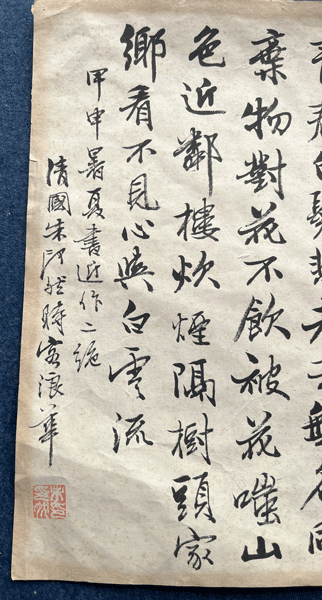 白髮
棄物對花不飲被花嗤山
色近鄰樓炊煙隔樹頭家
鄉看不見心與白雲流
甲申暑夏書近作二絕
清國朱印然時客浪華